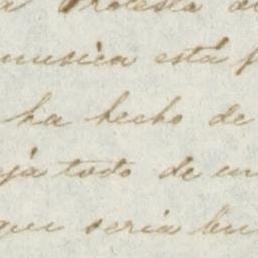 a Protesta de
musica está
ha hecho de
ja todo de un
que seria bu